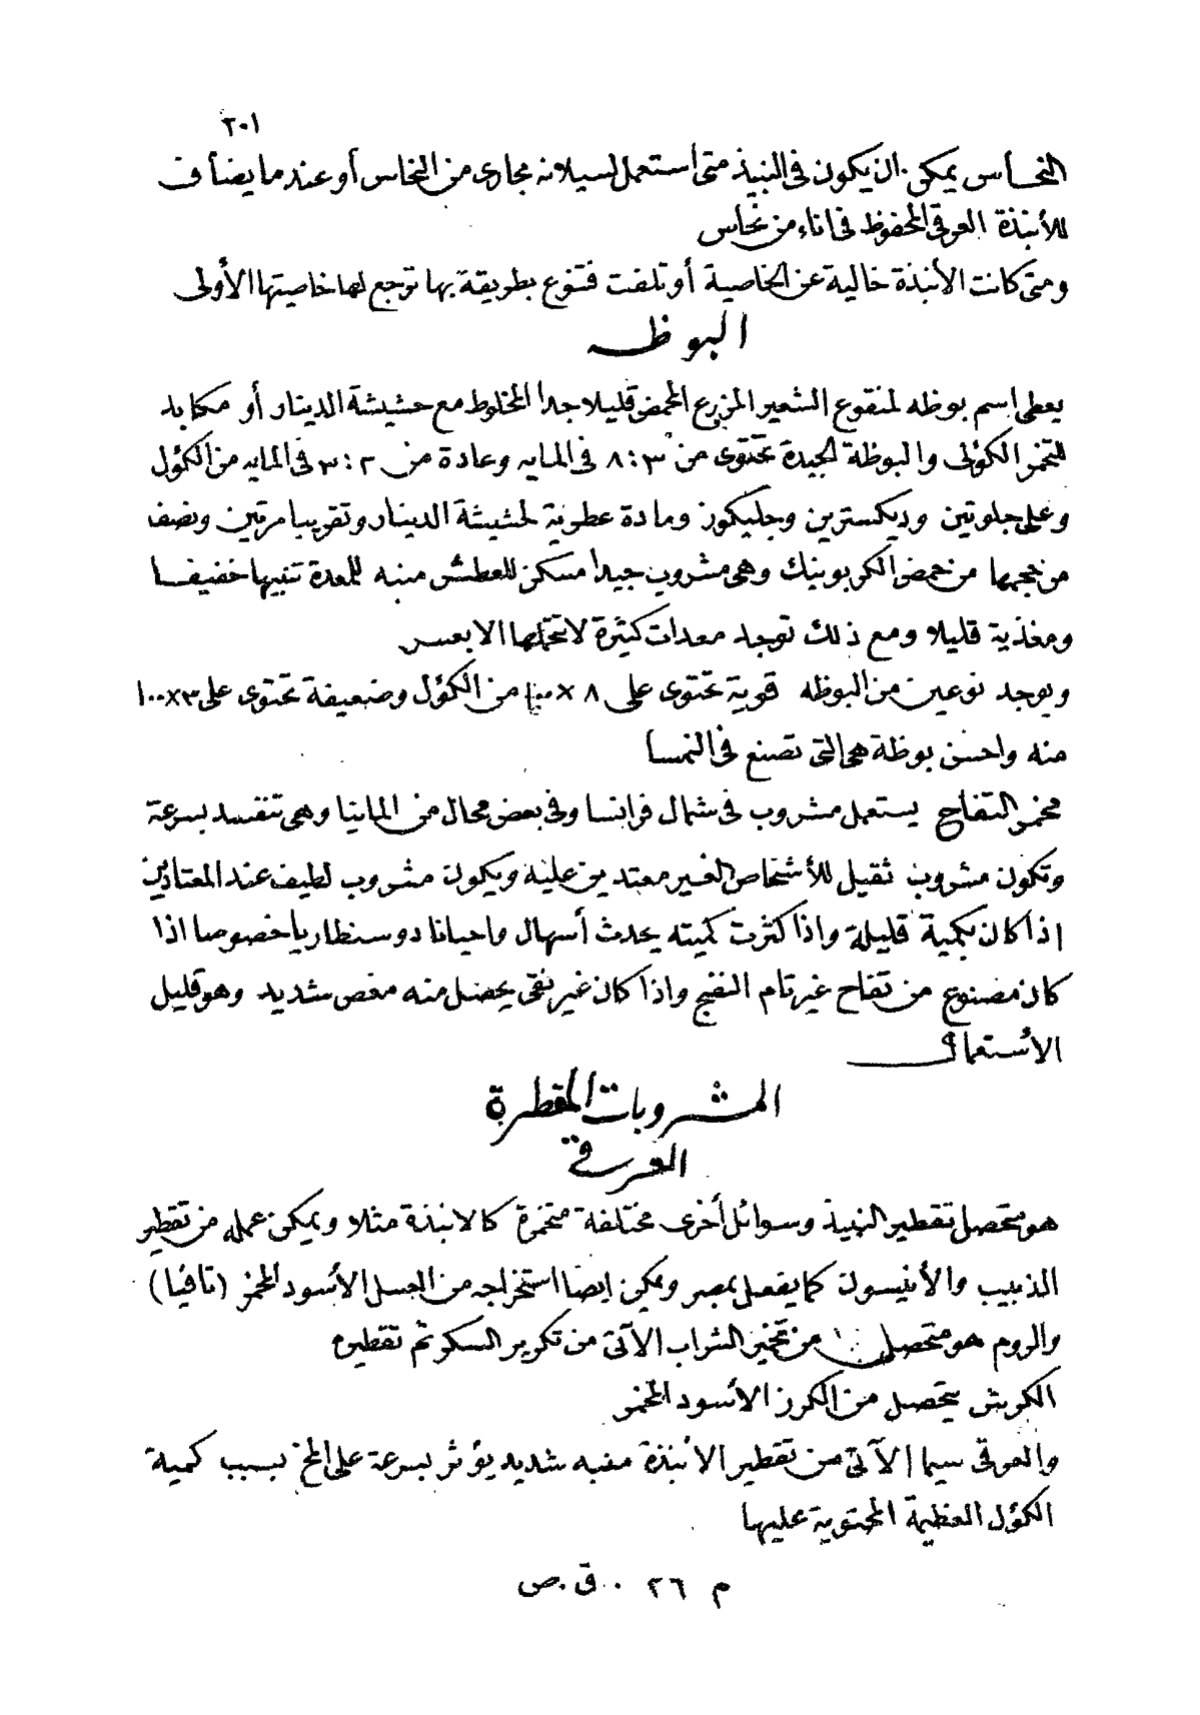 ٢٠١
النحاس يمكن ان يكون فى النبيذ متى أستعمل لسيلانه مجارى من النحاس أو عند ما يضاف
للأنبذة العرقى المحفوظ فى اناء من نحاس
ومتى كانت الأنبذة خالية عن الخاصية أو تلفت فتنوع بطريقة بها ترجع لها خاصيتها الأولى
البوظه
يعطى اسم بوظه لمنقوع الشعير المزرع المحمض قليلا جدا المخلوط مع حشيشة الدينار أو مكابد
للتخمر الكؤلى والبوظة الجيدة تحتوى من ٣ : ٨ فى المايه وعادة من ٢ : ٣ فى المايه من الكؤل
وعلى جلوتين وديكسترين وجليكوز ومادة عطرية لحشيشة الدينار وتقريبا مرتين ونصف
من حجمها من حمض الكربونيك وهى مشروب جيدا مسكن للعطش منبه للمعدة تنبيها خفيفا
ومغذية قليلا ومع ذلك توجد معدات كثيرة لاتتحملها الابعسر
ويوجد نوعين من البوظه قوية تحتوى على ٨ × ١٠٠ من الكؤل وضعيفة تحتوى على ٣×١٠٠
منه واحسن بوظة هى التى تصنع فى النمسا
مخمر التفاح يستعمل مشروب فى شمال فرانسا وفى بعض محال من المانيا وهى تنفسد بسرعة
وتكون مشروب ثقيل للأشخاص الغير معتدين عليه ويكون مشروب لطيف عند المعتادين
اذا كان بكمية قليلة واذا كثرت كميته يحدث أسهال واحيانا دوسنطاريا خصوصا اذا
كان مصنوع من تفاح غير تام النضج واذا كان غير نقى يحصل منه مغص شديد وهو قليل
الأستعمال
المشروبات المقطرة
العرقى
هو متحصل تقطير النبيذ وسوائل أخرى مختلفة متخمرة كالانبذة مثلا ويمكن عمله من تقطير
الذبيب والأنيسون كما يفعل بمصر ويمكن ايضا استخراجه من العسل الأسود المخمر (تافيا)
والروم هو متحصل من تخمير الشراب الآتى من تكرير السكر ثم تقطيره
الكرش يتحصل من الكرز الأسود المخمر
والعرقى سيما الآتى من تقطير الأنبذة منبه شديد يؤثر بسرعة على المخ بسبب كمية
الكؤل العظيمة المحتوية عليها
م ٢٦ . ق . ص